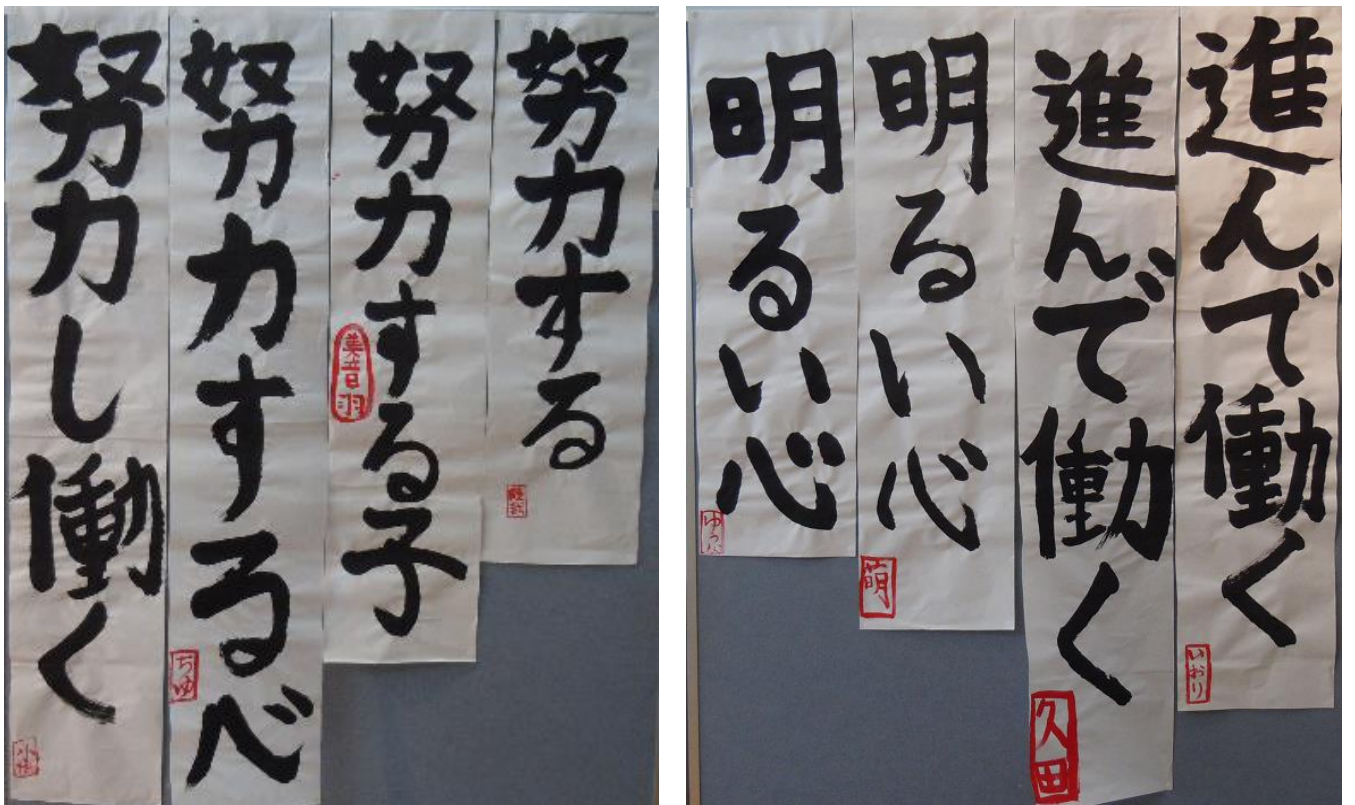 努力する
努力する子
美音羽
努力するべ
ちゆ
努力し働く
進んで働く
いおり
進んで働く
久田
明るい心
萌
明るい心